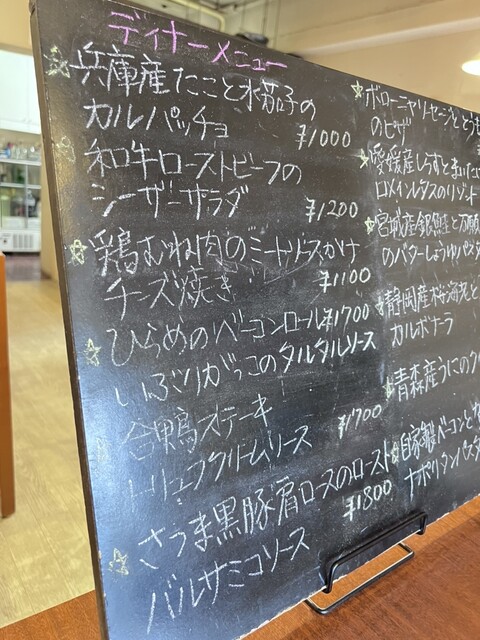 ディナーメニュー
☆兵庫産たこと水茄子の
カルパッチョ ¥1000
☆和牛ローストビーフの
シーザーサラダ ¥1200
☆鶏むね肉のミートソースかけ
チーズ焼き ¥1100
☆ひらめのベーコンロール ¥1700
いぶりがっこのタルタルソース
☆合鴨ステーキ
トリュフクリームソース ¥1700
☆さつま黒豚肩ロースのロースト
バルサミコソース ¥1800
☆ボローニャソーセージと
のピザ
☆愛媛産しらすと
ロメインレタスのリゾット
☆宮城産銀鮭と万願
のバターしょうゆパスタ
☆静岡産桜海老と
カルボナーラ
☆青森産うにのク
☆自家製ベーコンと
ナポリタンパスタ